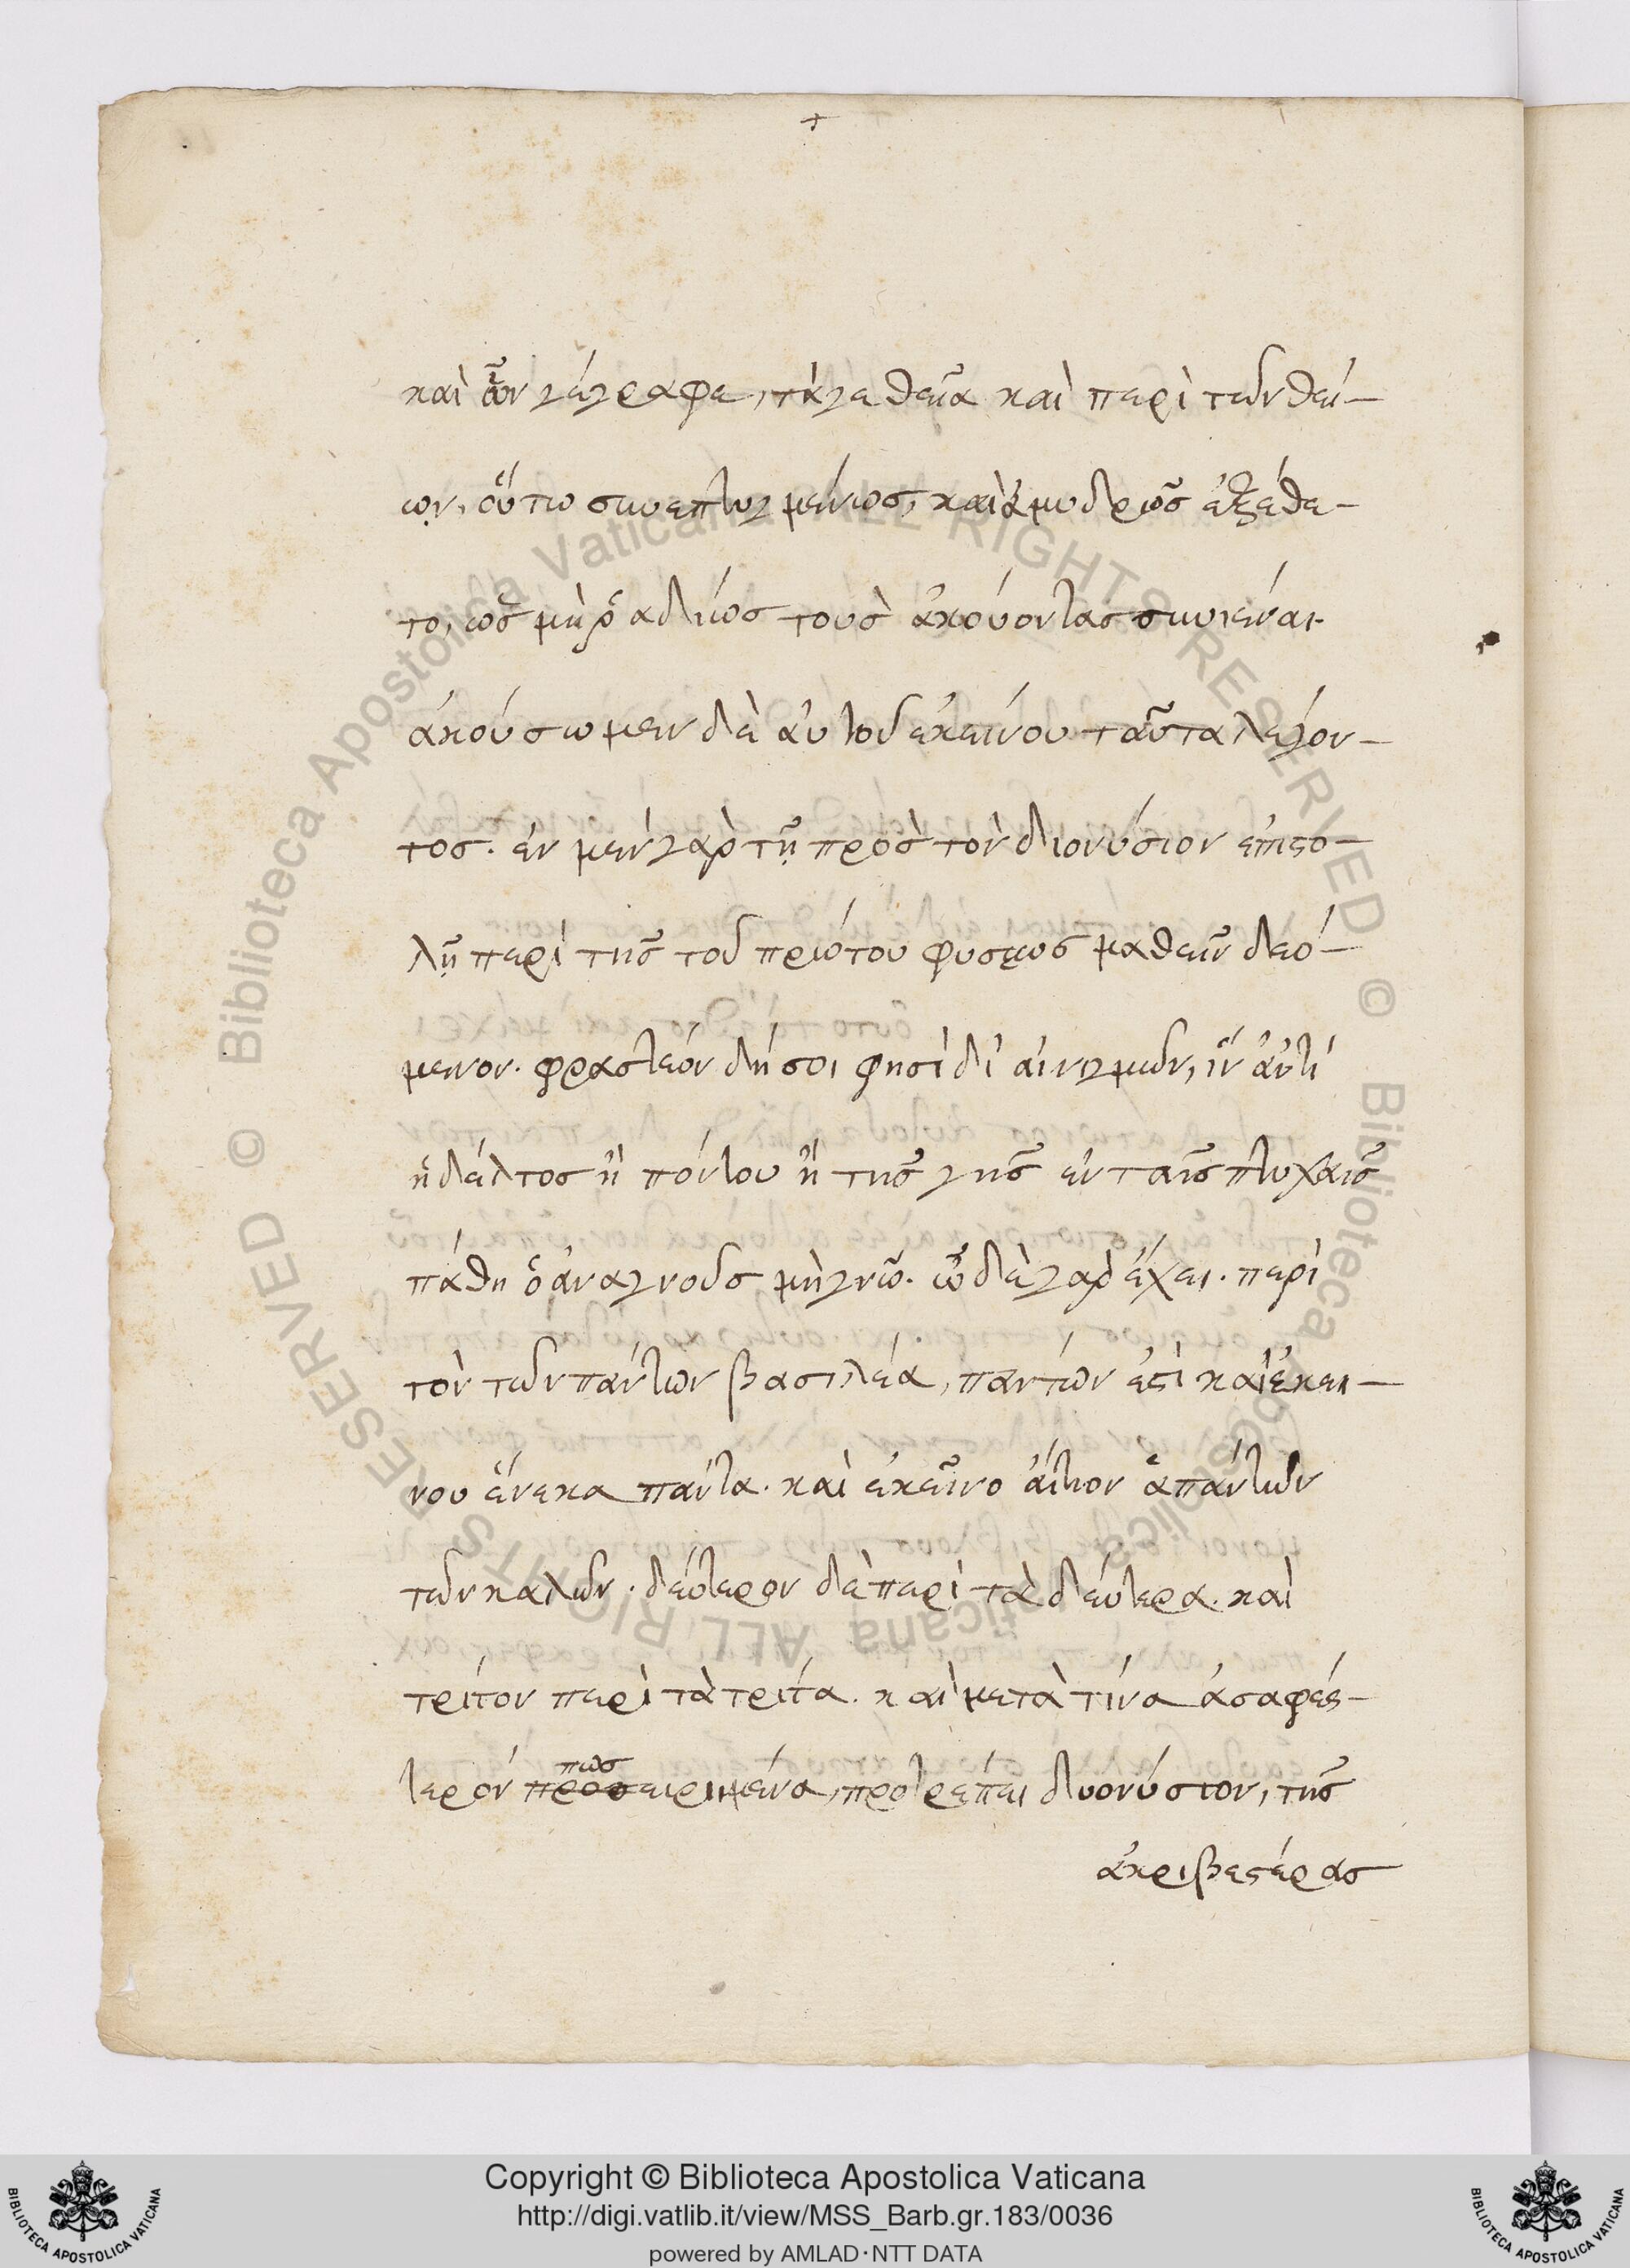 +
καὶ ὧν γέγραφε, τά γε θεῖα καὶ περὶ τῶν θεί-
ων, οὕτω συνεπτυγμένως, καὶ ἀμυδρῶς ἐξέθε-
το, ὡς μὴ ῥαδίως τοὺς ἀκούοντας συνιέναι.
ἀκούσωμεν δὲ αὐτοῦ ἐκείνου ταῦτα λέγον-
τος. ἐν μὲν γὰρ τῇ πρὸς τὸν διονύσιον ἐπιστο-
λῇ περὶ τῆς τοῦ πρώτου φύσεως μαθεῖν δεό-
μενον. φραστέον δή σοι φησὶ δι' αἰνιγμῶν, ἵν' ἄν τι
ἡ δέλτος ἢ πόντου ἢ τῆς γῆς ἐν ταῖς πτυχαῖς
πάθη ὁ ἀναγνοὺς μὴ γνῶ. ὧδε γὰρ ἔχει. περὶ
τὸν τῶν πάντων βασιλέα, πάντων ἐστὶ καὶ ἐκεί-
νου ἕνεκα πάντα. καὶ ἐκεῖνο αἴτιον ἁπάντων
τῶν καλῶν. δεύτερον δὲ περὶ τὰ δεύτερα. καὶ
τρίτον περὶ τὰ τρίτα. καὶ μετὰ τίνα ἀσαφέσ-
τερόν πως προσειρημένα, προτρέπει διονύσιον, τῆς
ἀκριβεστέρας
Biblioteca Apostolica Vaticana ALL RIGHTS RESERVED ©
Biblioteca Apostolica Vaticana ALL RIGHTS RESERVED ©
Copyright © Biblioteca Apostolica Vaticana
http://digi.vatlib.it/view/MSS_Barb.gr.183/0036
powered by AMLAD·NTT DATA
BIBLIOTECA APOSTOLICA VATICANA
BIBLIOTECA APOSTOLICA VATICANA